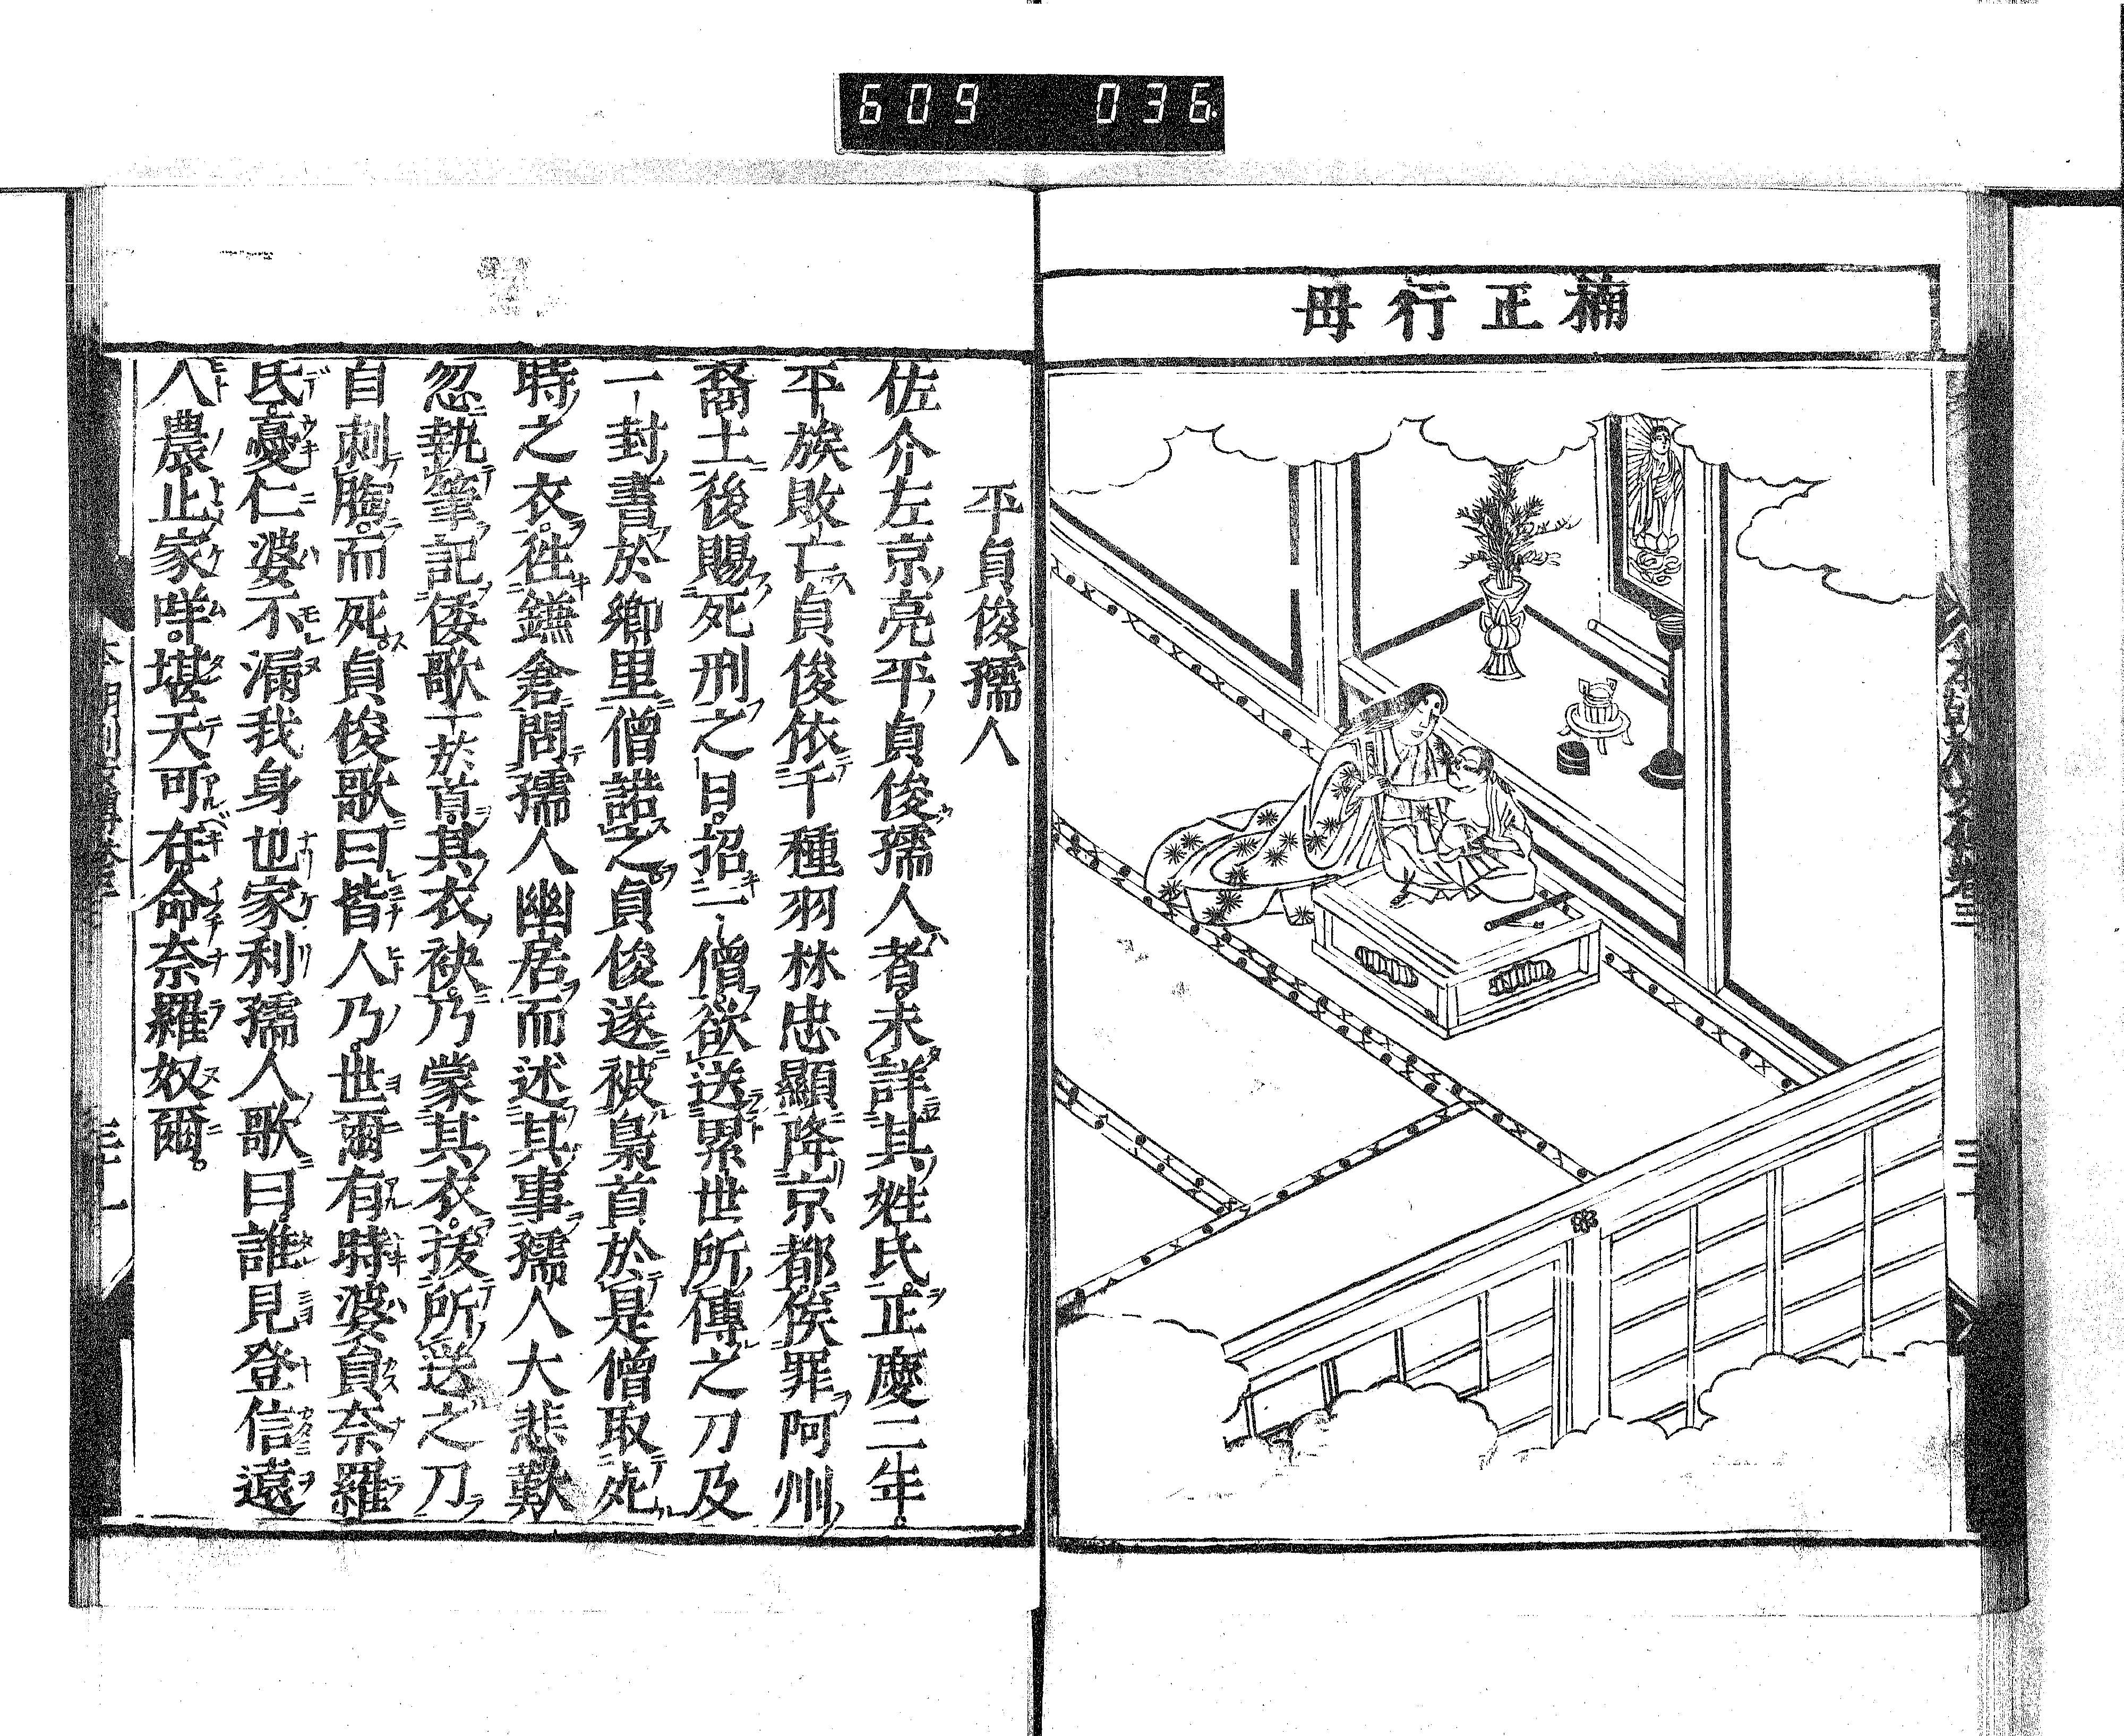 609 036
楠正行母
平貞俊孺人
佐介左京亮平貞俊孺人者未詳其姓氏正慶二年
平族敗亡貞俊依千種羽林忠顯降京都俟罪阿州
裔土後賜死刑之日招一僧欲送累世所傳之刀及
一封書於鄉里僧諾之貞俊遂被梟首於是僧取死
時之衣徃鐮倉問孺人幽居而述其事孺人大悲歎
忽執筆記倭歌一於首其衣袂乃蒙其衣拔所送之刀
自刺胸而死貞俊歌曰皆人乃世爾有時婆貟奈羅
氐憂仁婆不漏我身也家利孺人歌曰誰見登信遠
人農止家咩堪天可存命奈羅奴爾